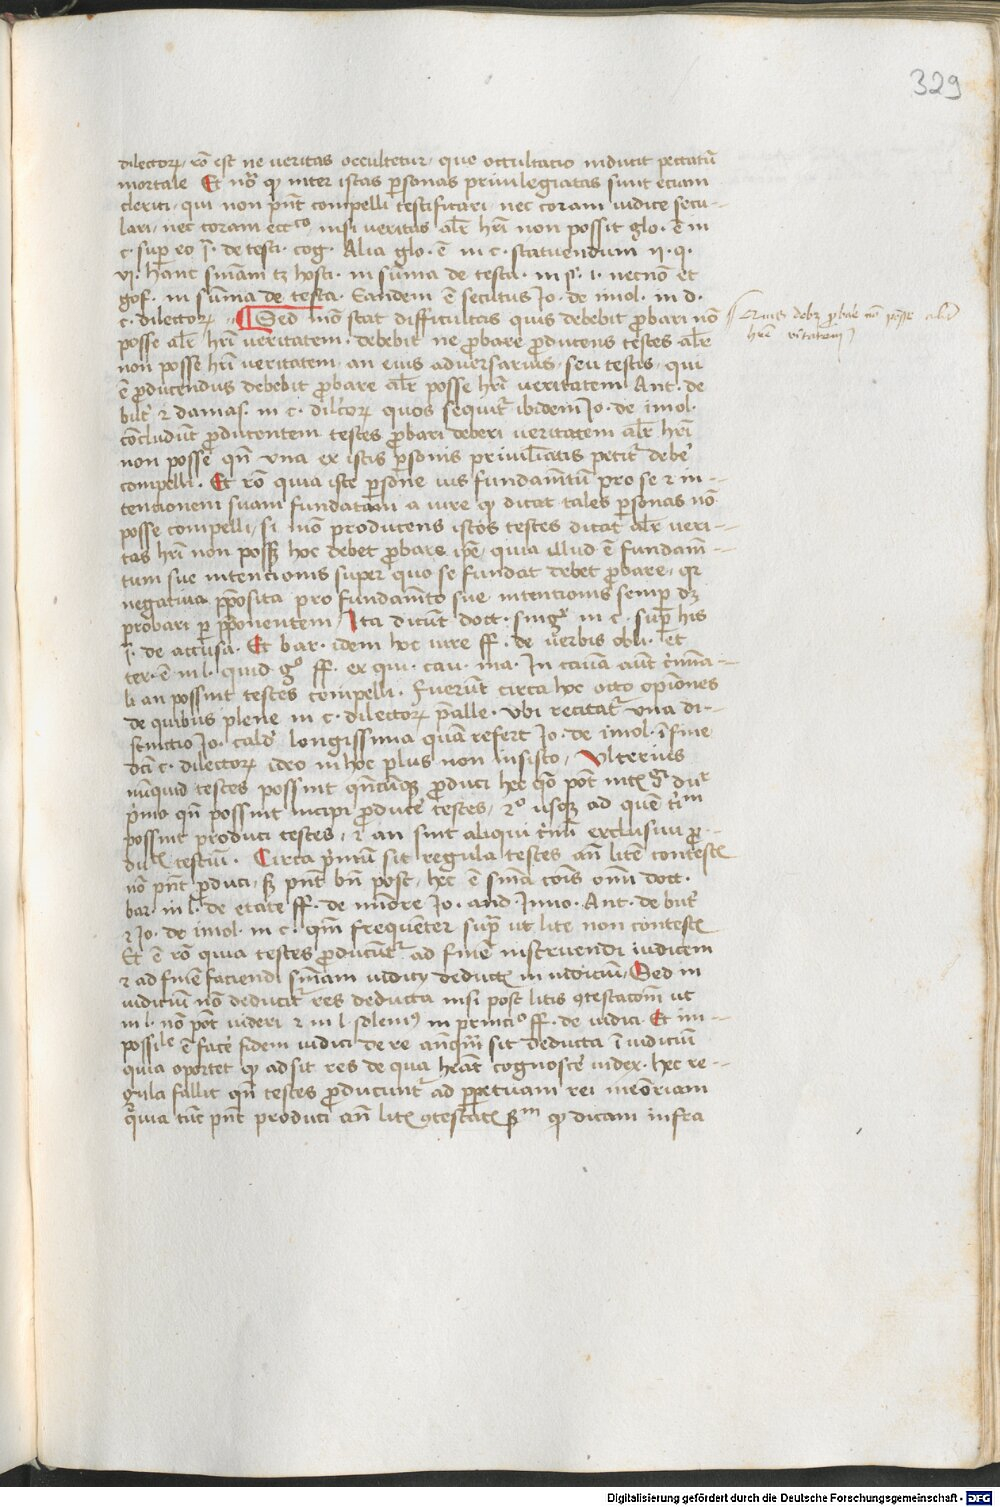 329
dilectorꝝ, rō est ne veritas occultetur, que occultatio inducit peccatū
mortale Et no͛ ꝙ inter istas ꝑsonas privilegiatas sunt eciam
clerici, qui non pn̄t compelli testificari, nec coram iudice secu-
lari, nec coram ecc͛co, nisi veritas alr̄ hr̄i non possit glo. ē in
c. suꝑ eo ī. de testi. cog. Alia glo. ē in c. statuendum ij. q.
vj. hanc sn̄iam tꝫ hosti. in sūma de testi. in §. i. necnō et
gof. in sūma de testa. Eandem ē secutus Jo. de imol. in d.
c. dilectorꝝ. Sed mō stat difficultas quis debebit ꝓbari nō
posse alr̄ hr̄i veritatem. debebit ne ꝓbare ꝓducens testes alr̄
non posse hr̄i veritatem, an eius adversarius, seu testis, qui
ē ꝓducendus debebit ꝓbare alr̄ posse hr̄i veritatem Ant. de
but͛ ⁊ damas. in c. dil͛corꝝ quos sequit͛ ibidem Jo. de imol.
cōcludūt ꝓducentem testes ꝓbari deberi veritatem alr̄ hr̄i
non posse qn̄ una ex istis ꝑsonis privil̄iatis petit͛ debe͛
compelli. Et rō quia iste ꝑsone ius fundamn̄tū pro se ⁊ in-
tencionem suam fundatam a iure ꝙ dicat tales ꝑsonas nō
posse compelli, si mō producens istos testes dicat alr̄ veri-
tas hr̄i non possꝫ hoc debet ꝓbare ip̄e, quia illud ē fundam̄-
tum sue intencionis super quo se fundat debet ꝓbare, qꝛ
negativa ꝓposita pro fundam̄to sue intencionis semꝑ dꝫ
ꝓbari ꝑ ꝓponentem, Ita dicūt doct. sing͛ in c. suꝑ his
ī. de accusa. Et bar. idem hoc iure ff. de verbis obli. et
ter. ē in l. quid gͦ ff. ex qui. cau. ma. In causa aūt cr̄ina-
li an possint testes compelli. fuerūt circa hoc octo opiones
de quibus plene in c. dilectorꝝ p̄alle. ubi recitat͛ una di-
stinctio Jo. cald͛ longissima quā refert Jo. de imol. ī fine
dci͛ c. dilectorꝝ ideo in hoc plus non insisto, Ulterius
nūnquid testes possint qn̄cūqꝫ ꝓduci hec qō pōt
p͛mo qn̄ possint incipi ꝓduce͛ testes, 2ͦ usqꝫ ad quē t͛m
possint produci testes, ⁊ an sint aliqui t͛mi exclusivi ꝓ-
testiū. Circa p͛mū sit regula testes an̄ litē contestꝭ
nō pn̄t ꝓduci, sꝫ pn̄t bn̄ post, hec ē sn̄ia cōis omī doct.
bar. in l. de etate ff. de minore Jo. and. Inno. Ant. de but͛
⁊ Jo. de imol. in c. qm̄ frequenter supͣ ut lite non contestꝭ
Et ē rō quia testes ꝓducūt͛ ad finē instruendi iudicem
⁊ ad finē faciendi sn̄iam iudicij deductꝭ in iudiciū, Sed in
iudiciū nō deducit͛ res deducta nisi post litis ꝯtestacōm ut
in l. nō pōt videri ⁊ in l. solemꝰ in princiͦ ff. de iudici. Et im-
possiͥle ē face͛ fidem iudici de re anq̄m sit deducta ī iudiciū
quia oportet ꝙ adsit res de qua heat̄ cognosce͛ iudex. hec re-
gula fallit qn̄ testes ꝓducunt͛ ad ꝑpetuam rei memōriam
quia tūc pn̄t produci an̄ litꝭ ꝯtestacꝭ ꝙ dicam infra
Quis debꝫ ꝓbare nō posse alr̄
hr̄i v͛itatem
Digitalisierung gefördert durch die Deutsche Forschungsgemeinschaft - DFG